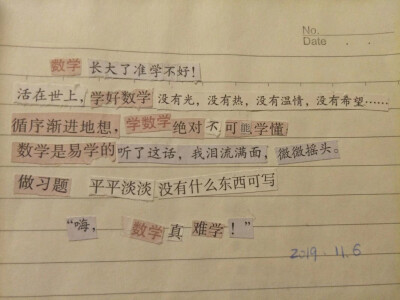 No.
Date
数学 长大了准学不好！
活在世上，学好数学 没有光，没有热，没有温情，没有希望……
循序渐进地想，学数学 绝对 不 可能 学懂
数学是易学的 听了这话，我泪流满面，微微摇头。
做习题 平平淡淡 没有什么东西可写
“嗨，数学 真 难学！”
2019.11.6